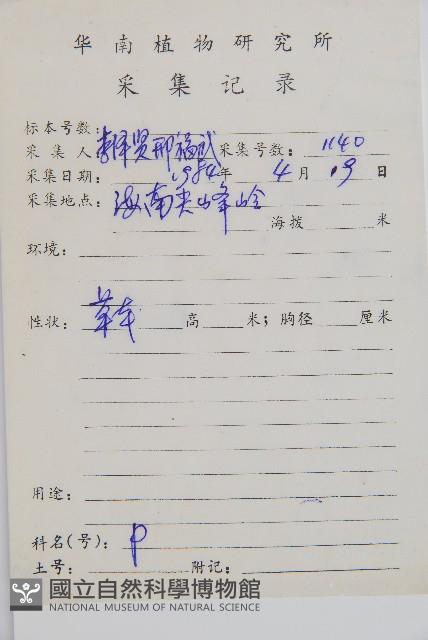 华南植物研究所
采集记录
标本号数：
采集人：李泽贤邢福武 采集号数：1140
采集日期：1984年4月19日
采集地点：海南尖峰岭
海拨 米
环境：
性状：草本 高 米；胸径 厘米
用途：
科名(号)：P
土号： 附记：
國立自然科學博物館
NATIONAL MUSEUM OF NATURAL SCIENCE